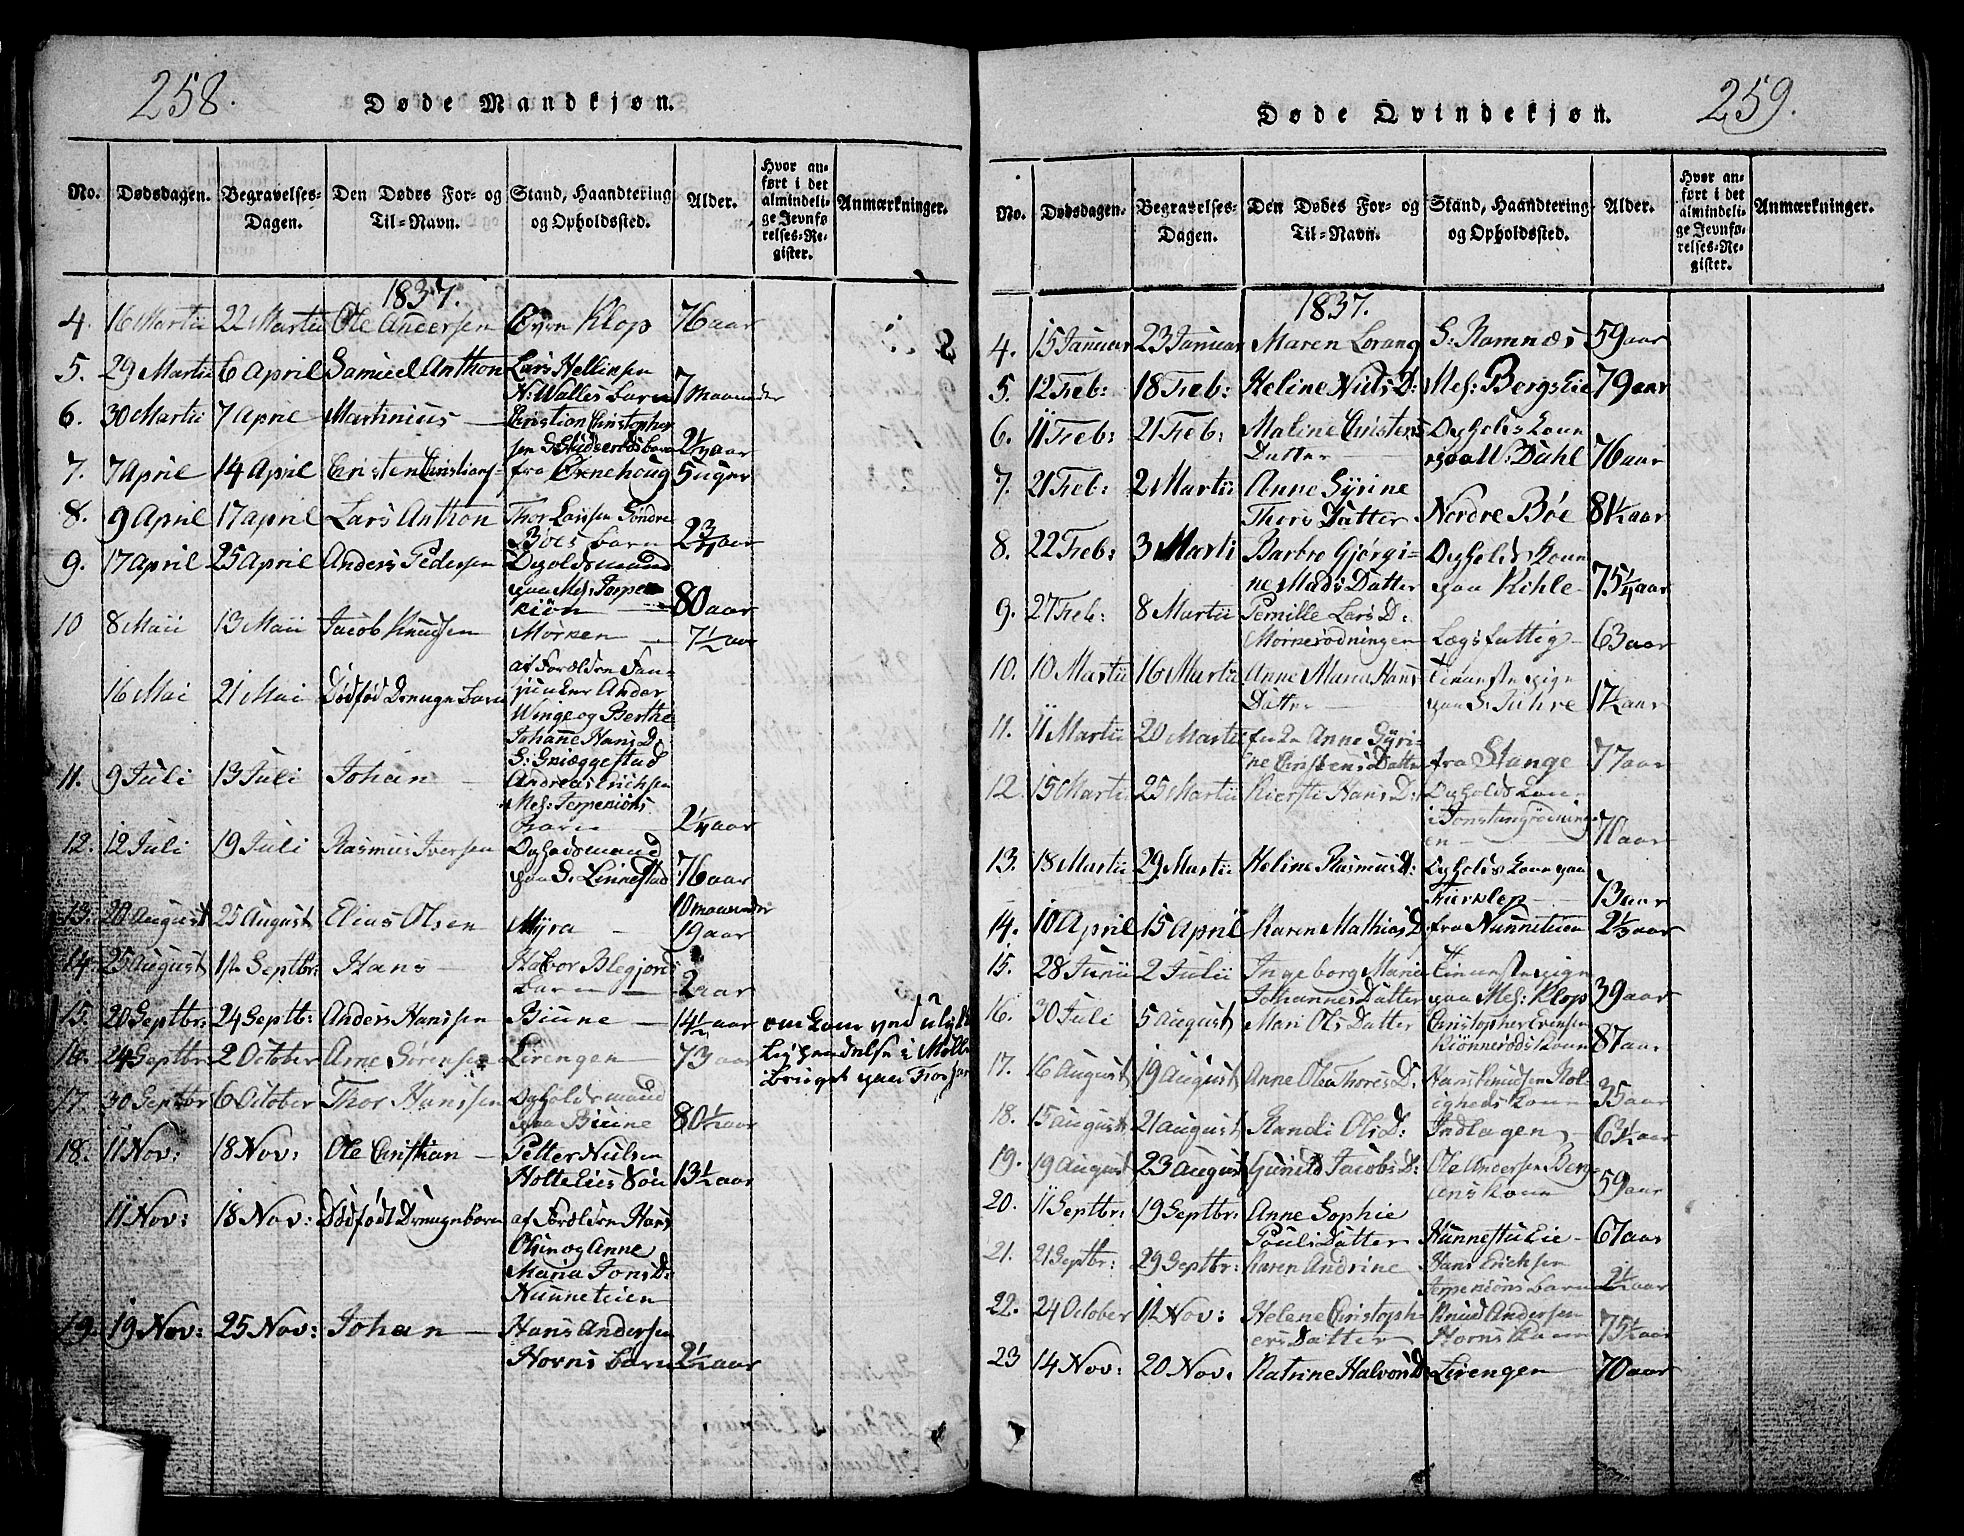 258.
Døde Mandkjøn.
No. Dødsdagen. Begravelses-Dagen. Den Dødes For- og Til-Navn. Stand, Haandtering og Opholdssted. Alder. Hvor anført i det almindelige Jevnførelses-Register. Anmærkninger.
1837.
4. 16 Martii 22 Martii Ole Andersen Øvre Klop 76 aar
5. 29 Martii 6 April Samuel Anthon Lars Hellissen
N: Walles barn 7 maaneder
6. 30 Martii 7 April Martinius Christian Christopher
sen S: barn 2½ aar
7. 7 April 14 April Christen Christians- fra Ørnehoug 5 uger
8. 9 April 17 April Lars Anthon Thor Larssen Söndre
Böes barn 2¾ aar
9. 17 April 25 April Anders Pedersen Opholdsmand
paa Mel: Jerpe
kiön 80 aar
10 8 Maii 13 Maii Jacob Knudsen Mörken 7½ aar
16 Mai 21 Mai Dödfød Drengebarn af Forældre Fan-
junker Ander
Winge og Berthe
Johanne Hans D:
S: Griæggestad
11. 9 Juli 13 Juli Johan Andreas Erichsen
Mel: Jerpekiöns
Barn 2¼ aar
12. 12 Juli 19 Juli Rasmus Iversen Opholdsmand
paa S. Linnestad 76 aar
13. 20 August 25 August Elias Olsen Myra 10 maaneder
19 aar
14. 25 August 1ste Septbr: Hans Habor Blegjords
Barn 2 aar
15. 20 Septbr: 24 Septb: Anders Hanssen Biune 14½ aar omkom ved ulyk
16. 24 Septbr 2 October Arne Sörensen Lerengen 73 aar kelig hændelse i Mölle
bruget paa Fossan
17. 30 Septbr 6 October Thor Hanssen Opholdsmand
paa Biune 80½ aar
18. 11 Nov: 18 Nov: Ole Christian Petter Nielsen
Holtelies Sön 13½ aar
11 Nov: 18 Nov: Dödfödt Drengebarn af Forældre Hans
Olsen og Anne
Maria Jons D:
Hunnetuen
19. 19 Nov: 25 Nov: Johan Hans Andersen
Horns barn 2½ aar
259.
Døde Qvindekjøn.
No. Dødsdagen. Begravelses-Dagen. Den Dødes For- og Til-Navn. Stand, Haandtering og Opholdssted. Alder. Hvor anført i det almindelige Jevnførelses-Register. Anmærkninger.
1837.
4. 15 Januar 23 Januar Maren Lorang S: Ramnæs 59 aar
5. 12 Feb: 18 Feb: Heline Niels D: Mel: Bergslie 79 aar
6. 11 Feb: 21 Feb: Maline Christens Opholdskone
Datter paa W: Dahl 76 aar
7. 21 Feb: 2 Martii Anne Syrine
Thors Datter Nordre Böe 81½ aar
8. 22 Feb: 3 Marti Barbro Gjörgi- Opholdskone
ne Mads Datter paa Kihle 75¼ aar
9. 27 Feb: 8 Martii Pernille Lars D:
Mörnerödningen Lægsfattig 63 aar
10. 10 Martii 16 Martii Anne Maria Hans Tienestepige
Datter paa S. Fuhre 17½ aar
11. 11 Martii 20 Martii Anne Syri-
ne Christens Datter fra Stange 77 aar
12. 15 Marti 25 Martii Kiersti Hans D: Opholdskone
i Jonstangrödning-
en 70 aar
13. 18 Martii 29 Martii Heline Rasmus D: Opholdskone paa
Fierklep 73 aar
14. 10 April 15 April Karen Mathias D fra Hunnetuen 2½ aar
15. 28 Junii 2 Julii Ingeborg Maria Tienestepige
Johannes Datter paa Mel: Klop 39 aar
16. 30 Juli 5 August Mari Ols Datter Christopher Evensen
Kiönneröds Kone 87 aar
17. 16 August 19 August Anne Olea Thores D: Hans Knudsen Rol-
igheds Kone 35 aar
18. 15 August 21 August Randi Ols D: Indlagen 63½ aar
19. 19 August 23 August Gunild Jacobs D: Ole Andersen Berg-
ens Kone 59 aar
20. 11 Septbr: 19 Septbr: Anne Sophie
Pouls Datter Hunnestulie 67 aar
21. 21 Septbr: 29 Septbr: Karen Andrine Hans Erichsen
Jerpekiöns barn 2½ aar
22. 24 October 1ste Nov: Helene Christoph- Knud Andersen
ers Datter Horns Kone 75½ aar
23 14 Nov: 20 Nov. Katrine Halvors D Lerengen 70 aar